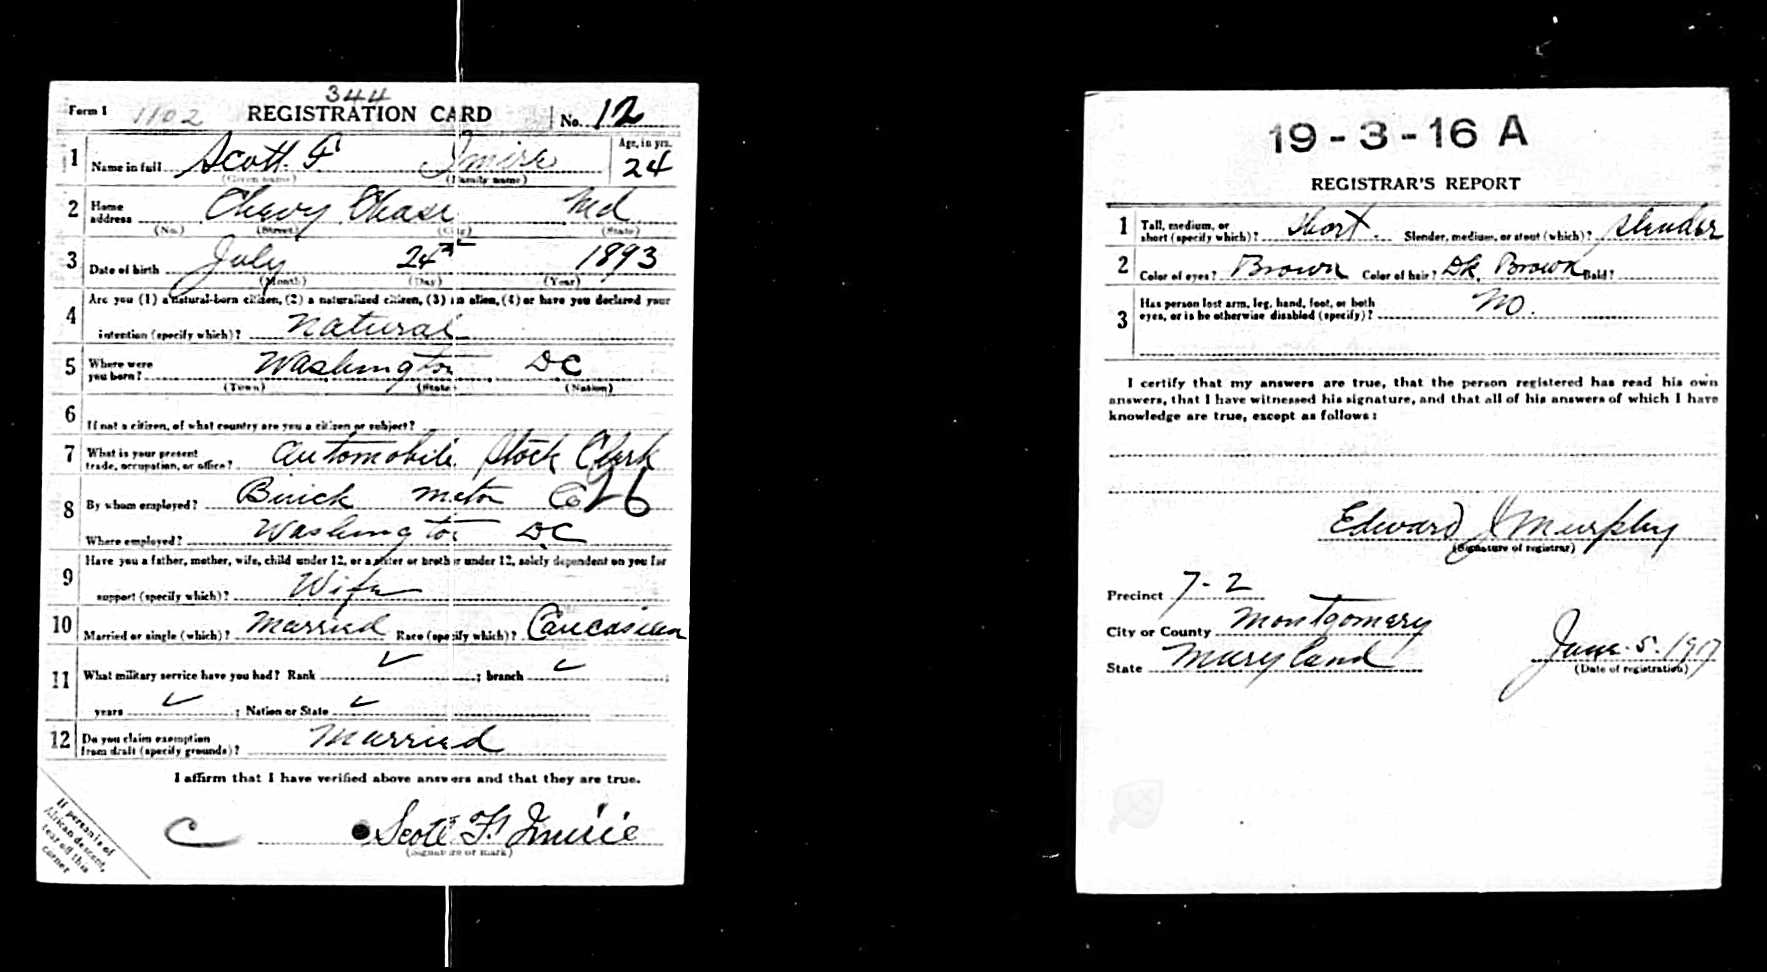 344
Form 1 1102 REGISTRATION CARD No. 12
1 Name in full Scott F. Imirie Age, in yrs. 24
(Given name) (Family name)
2 Home address Chevy Chase Md
(No.) (Street) (City) (State)
3 Date of birth July 24th 1893
(Month) (Day) (Year)
4 Are you (1) a natural-born citizen, (2) a naturalized citizen, (3) an alien, (4) or have you declared your
intention (specify which)? Natural
5 Where were you born? Washington DC
(Town) (State) (Nation)
6 If not a citizen, of what country are you a citizen or subject?
7 What is your present trade, occupation, or office? Automobile Stock Clerk
8 By whom employed? Buick Motor Co 26
Where employed? Washington DC
9 Have you a father, mother, wife, child under 12, or a sister or brother under 12, solely dependent on you for
support (specify which)? Wife
10 Married or single (which)? Married Race (specify which)? Caucasian
11 What military service have you had? Rank ✓ ; branch ✓ ;
years ✓ ; Nation or State ✓
12 Do you claim exemption from draft (specify grounds)? Married
I affirm that I have verified above answers and that they are true.
C Scott F. Imirie
(Signature or mark)
If person is of
African descent,
tear off this
corner
19-3-16 A
REGISTRAR'S REPORT
1 Tall, medium, or short (specify which)? Short. Slender, medium, or stout (which)? Slender
2 Color of eyes? Brown Color of hair? Dk. Brown Bald?
3 Has person lost arm, leg, hand, foot, or both
eyes, or is he otherwise disabled (specify)? No.
I certify that my answers are true, that the person registered has read his own
answers, that I have witnessed his signature, and that all of his answers of which I have
knowledge are true, except as follows:
Edward J Murphy
(Signature of registrar)
Precinct 7-2
City or County Montgomery
State Maryland June. 5. 1917
(Date of registration)